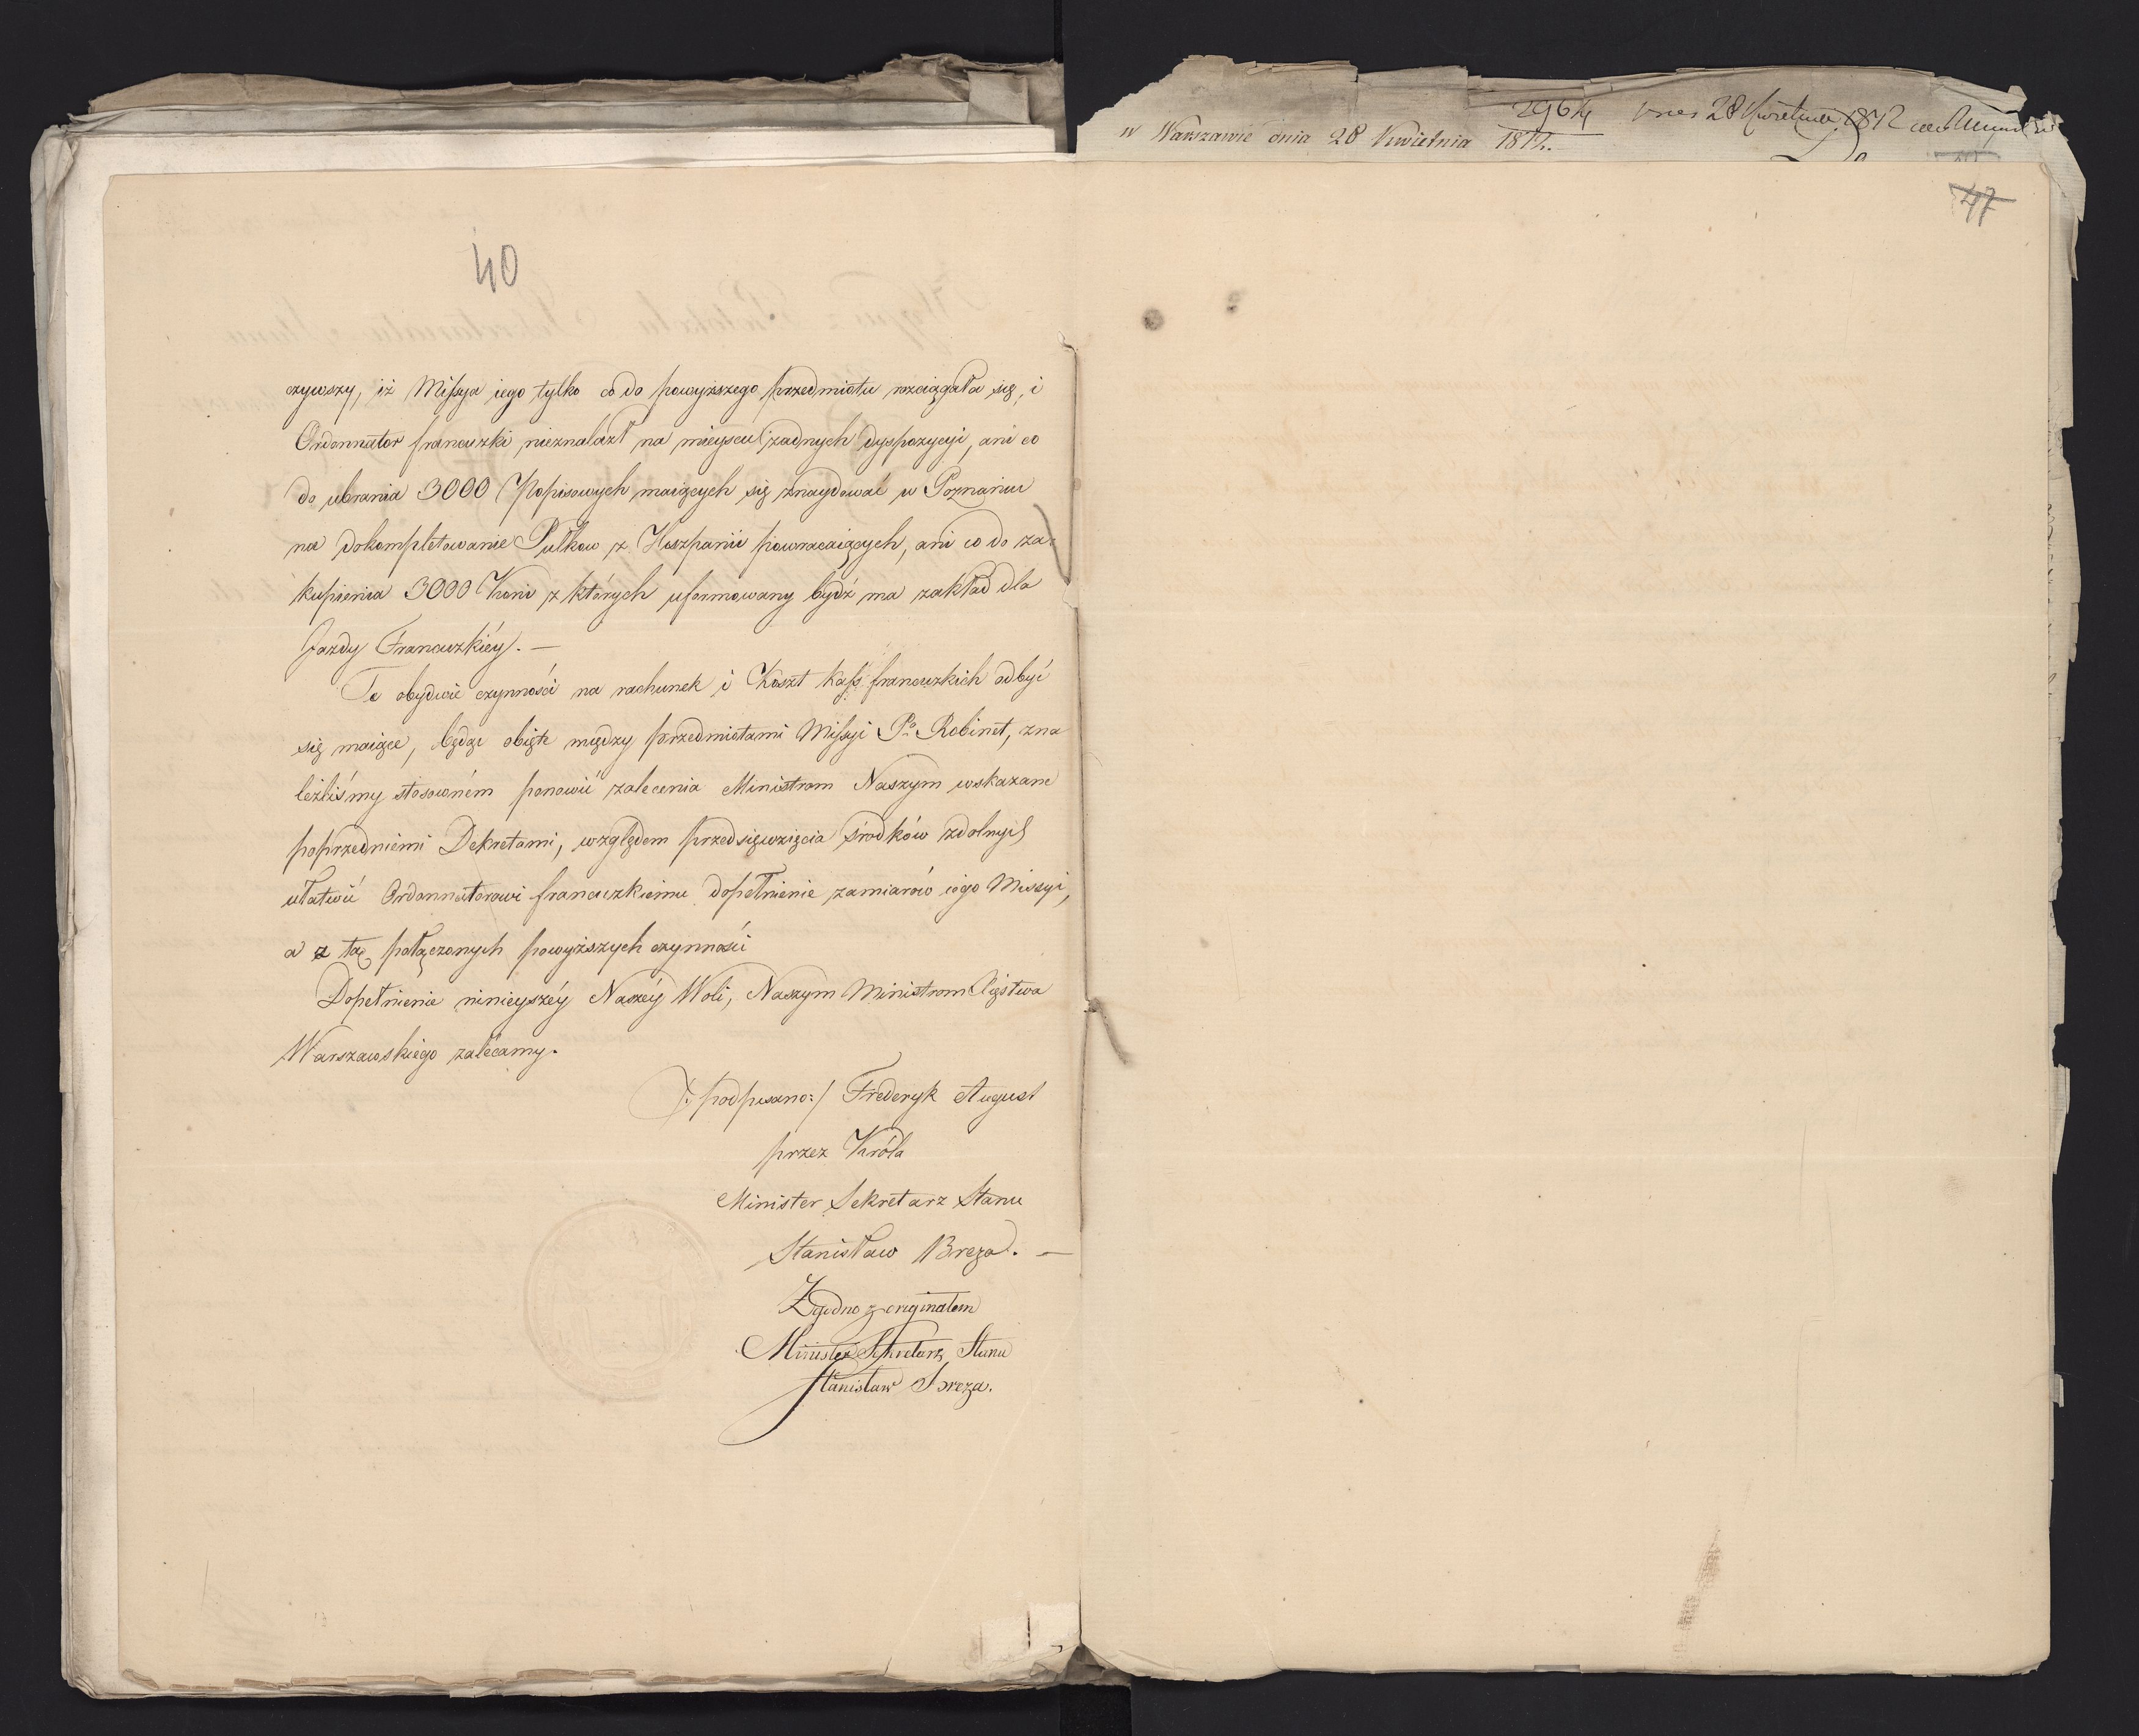 40
czywszy, iż Missya iego tylko co do powyższego przedmiotu rozciągała się, i
Ordonnator francuzki nieznalazł na mieyscu żadnych dyspozycyi, ani co
do ubrania 3000 Popisowych maiących się znaydować w Poznaniu
na dokompletowanie Pułkow z Hiszpanii powracaiących, ani co do za=
kupienia 3000 Koni z których uformowany bydź ma zakład dla
Jazdy Francuzkiéy. —
Te obydwie czynności na rachunek i Koszt kass francuzkich odbyć
się maiące, będąc obięte między przedmiotami Missyi Pa Robinet, zna
leźliśmy stosowném ponowić zalecenia Ministrom Naszym wskazane
poprzedniemi Dekretami, względem przedsięwzięcia środków zdolnych
ułatwić Ordonnatorowi francuzkiemu dopełnienie zamiarów iego Missyi,
a z tą połączonych powyższych czynności
Dopełnienie ninieyszéy Naszéy Woli, Naszym Ministrom Xięstwa
Warszawskiego zalecamy.
/:podpisano:/ Frederyk August
przez Króla
Minister Sekretarz Stanu
Stanisław Breza. —
Zgodno z originałem
Minister Sekretarz Stanu
Stanisław Breza.
2964 28 Kwietnia 1812
w Warszawie dnia 28 Kwietnia 1812.
47